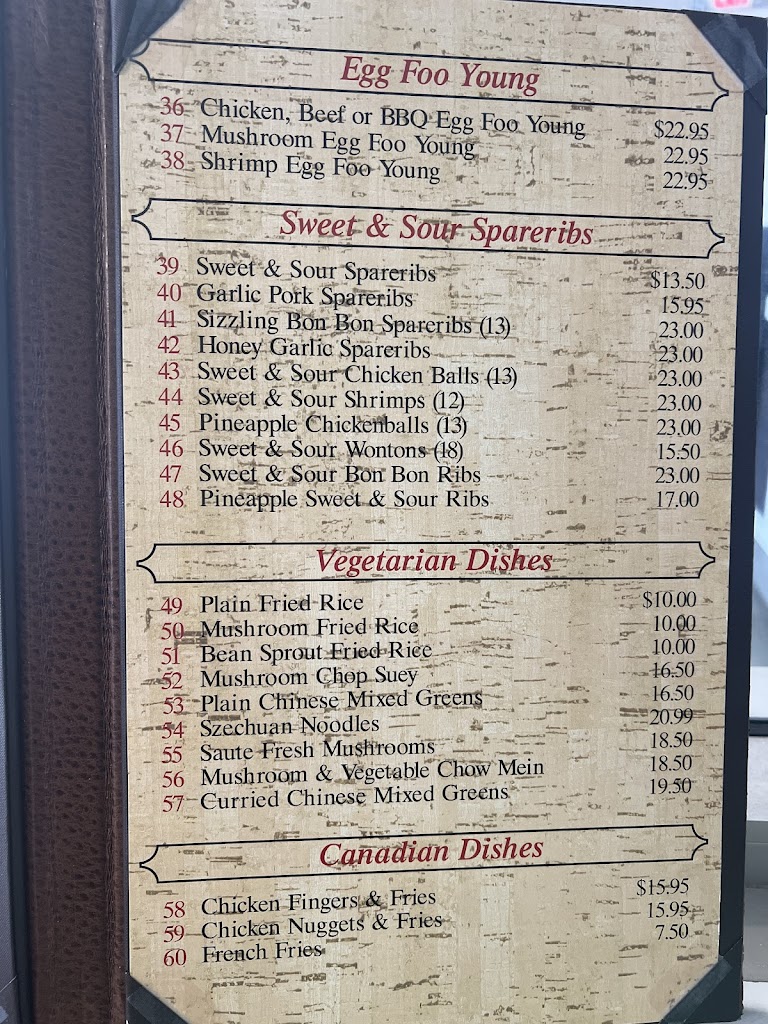 Egg Foo Young
36 Chicken, Beef or BBQ Egg Foo Young $22.95
37 Mushroom Egg Foo Young 22.95
38 Shrimp Egg Foo Young 22.95
Sweet & Sour Spareribs
39 Sweet & Sour Spareribs $13.50
40 Garlic Pork Spareribs 15.95
41 Sizzling Bon Bon Spareribs (13) 23.00
42 Honey Garlic Spareribs 23.00
43 Sweet & Sour Chicken Balls (13) 23.00
44 Sweet & Sour Shrimps (12) 23.00
45 Pineapple Chickenballs (13) 23.00
46 Sweet & Sour Wontons (18) 15.50
47 Sweet & Sour Bon Bon Ribs 23.00
48 Pineapple Sweet & Sour Ribs 17.00
Vegetarian Dishes
49 Plain Fried Rice $10.00
50 Mushroom Fried Rice 10.00
51 Bean Sprout Fried Rice 10.00
52 Mushroom Chop Suey 16.50
53 Plain Chinese Mixed Greens 16.50
54 Szechuan Noodles 20.99
55 Saute Fresh Mushrooms 18.50
56 Mushroom & Vegetable Chow Mein 18.50
57 Curried Chinese Mixed Greens 19.50
Canadian Dishes
58 Chicken Fingers & Fries $15.95
59 Chicken Nuggets & Fries 15.95
60 French Fries 7.50